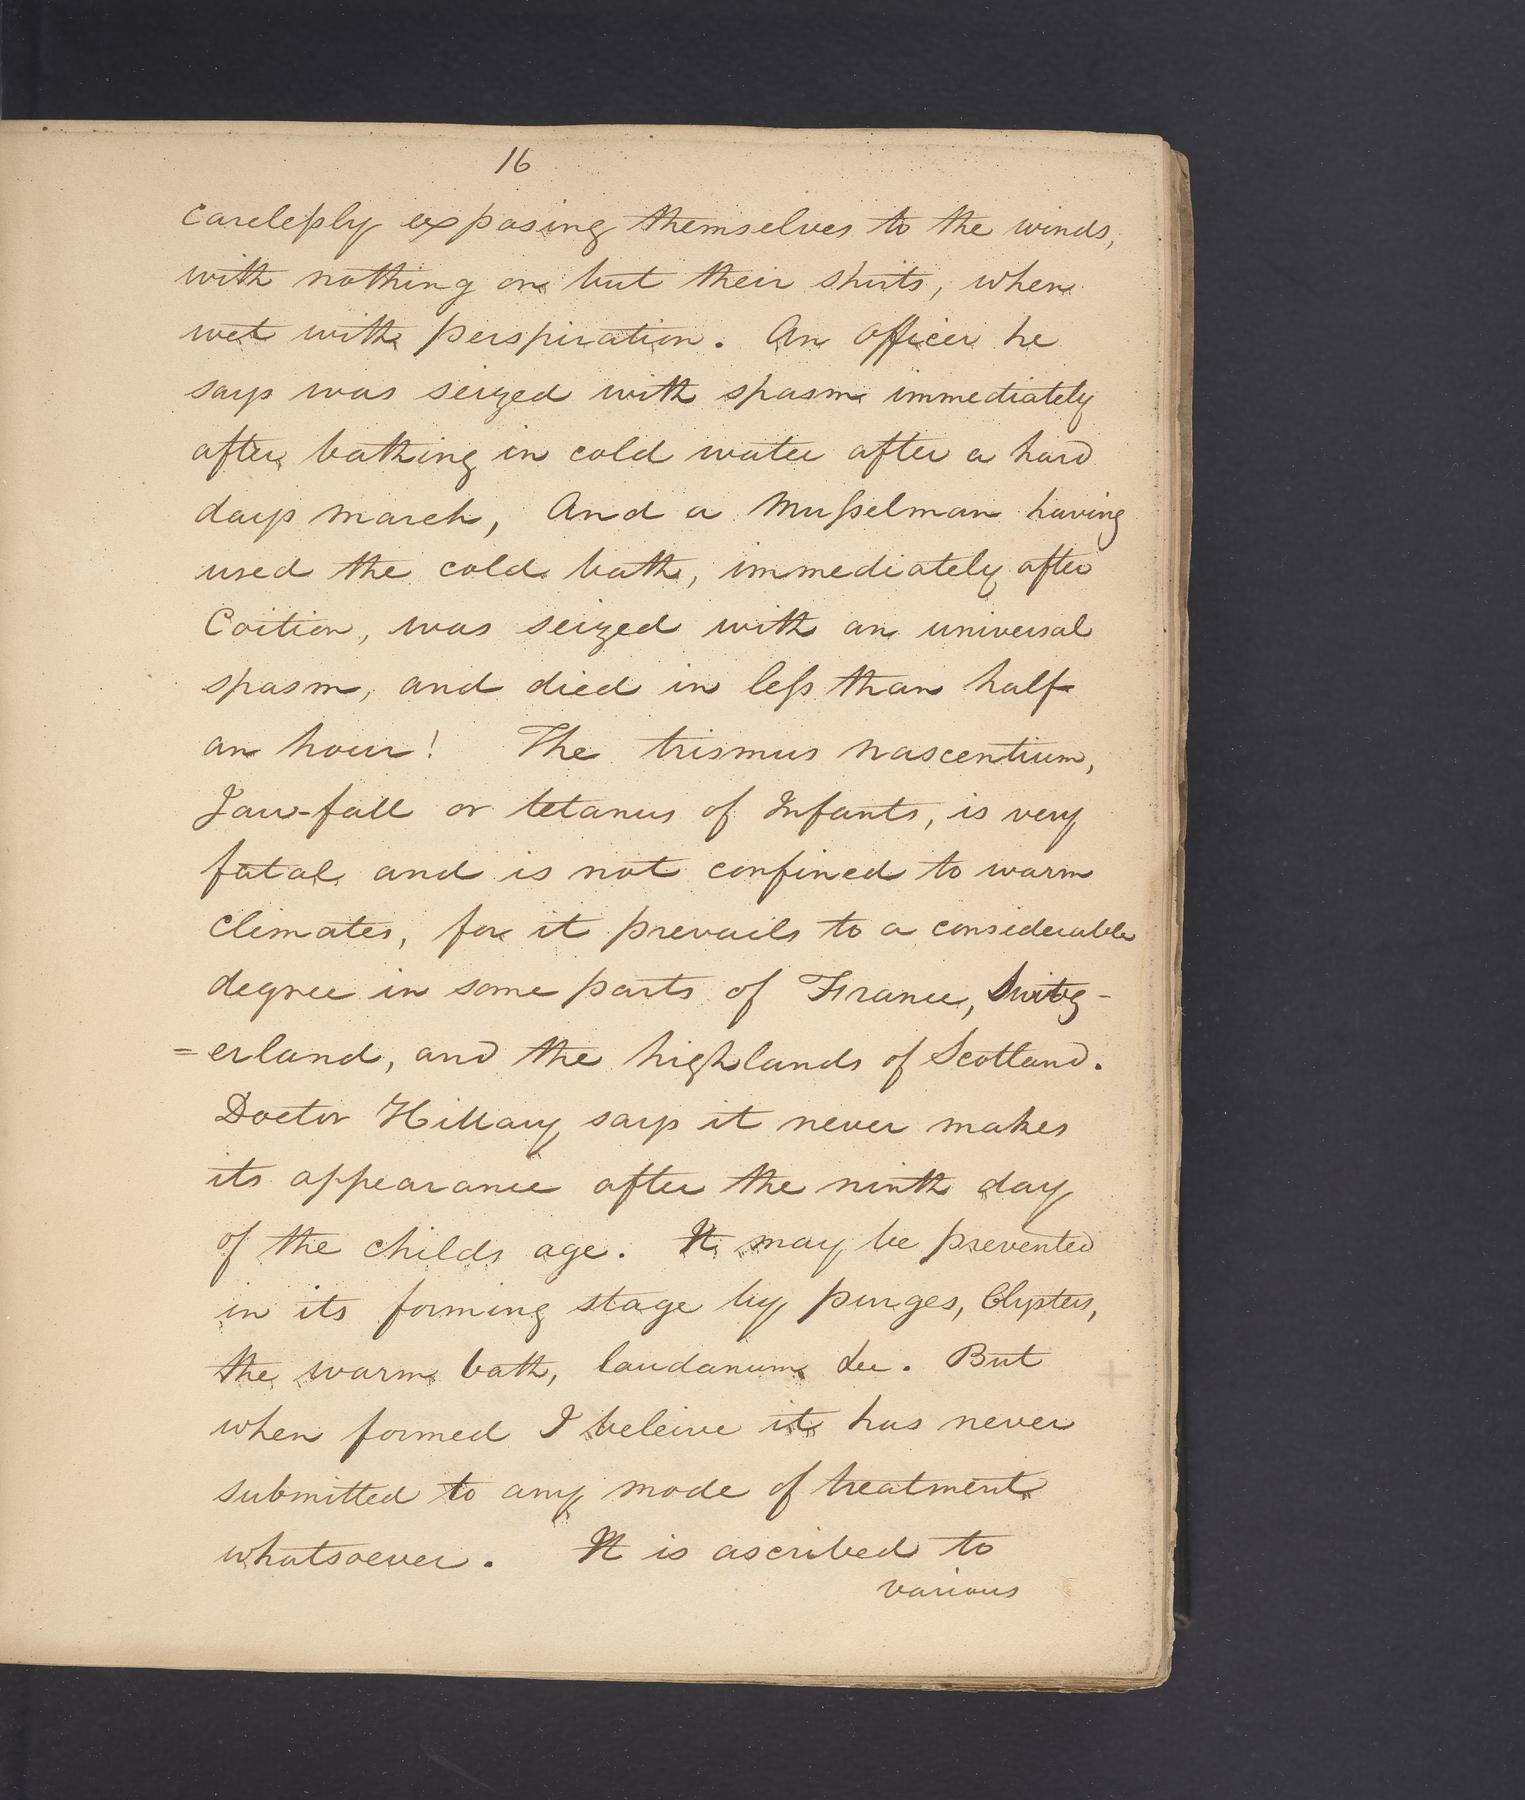 16
carelessly exposing themselves to the winds,
with nothing on but their shirts, when
wet with perspiration. An officer he
says was seized with spasm immediately
after bathing in cold water after a hard
days march, And a Musselman having
used the cold bath, immediately after
Coition, was seized with an universal
spasm, and died in less than half
an hour! The trismus nascentium,
Jaw-fall or tetanus of Infants, is very
fatal and is not confined to warm
climates, for it prevails to a considerable
degree in some parts of France, Switz-
=erland, and the highlands of Scotland.
Doctor Hillary says it never makes
its appearance after the ninth day
of the childs age. It may be prevented
in its forming stage by purges, Clysters,
the warm bath, laudanum &c. But
when formed I beleive it has never
submitted to any mode of treatment
whatsoever. It is ascribed to
various